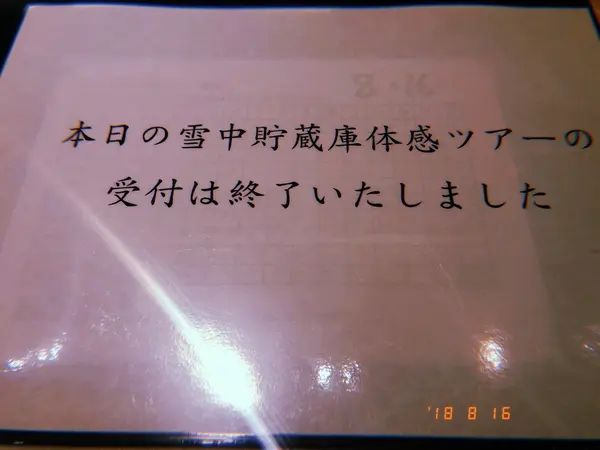 本日の雪中貯蔵庫体感ツアーの
受付は終了いたしました
'18 8 16